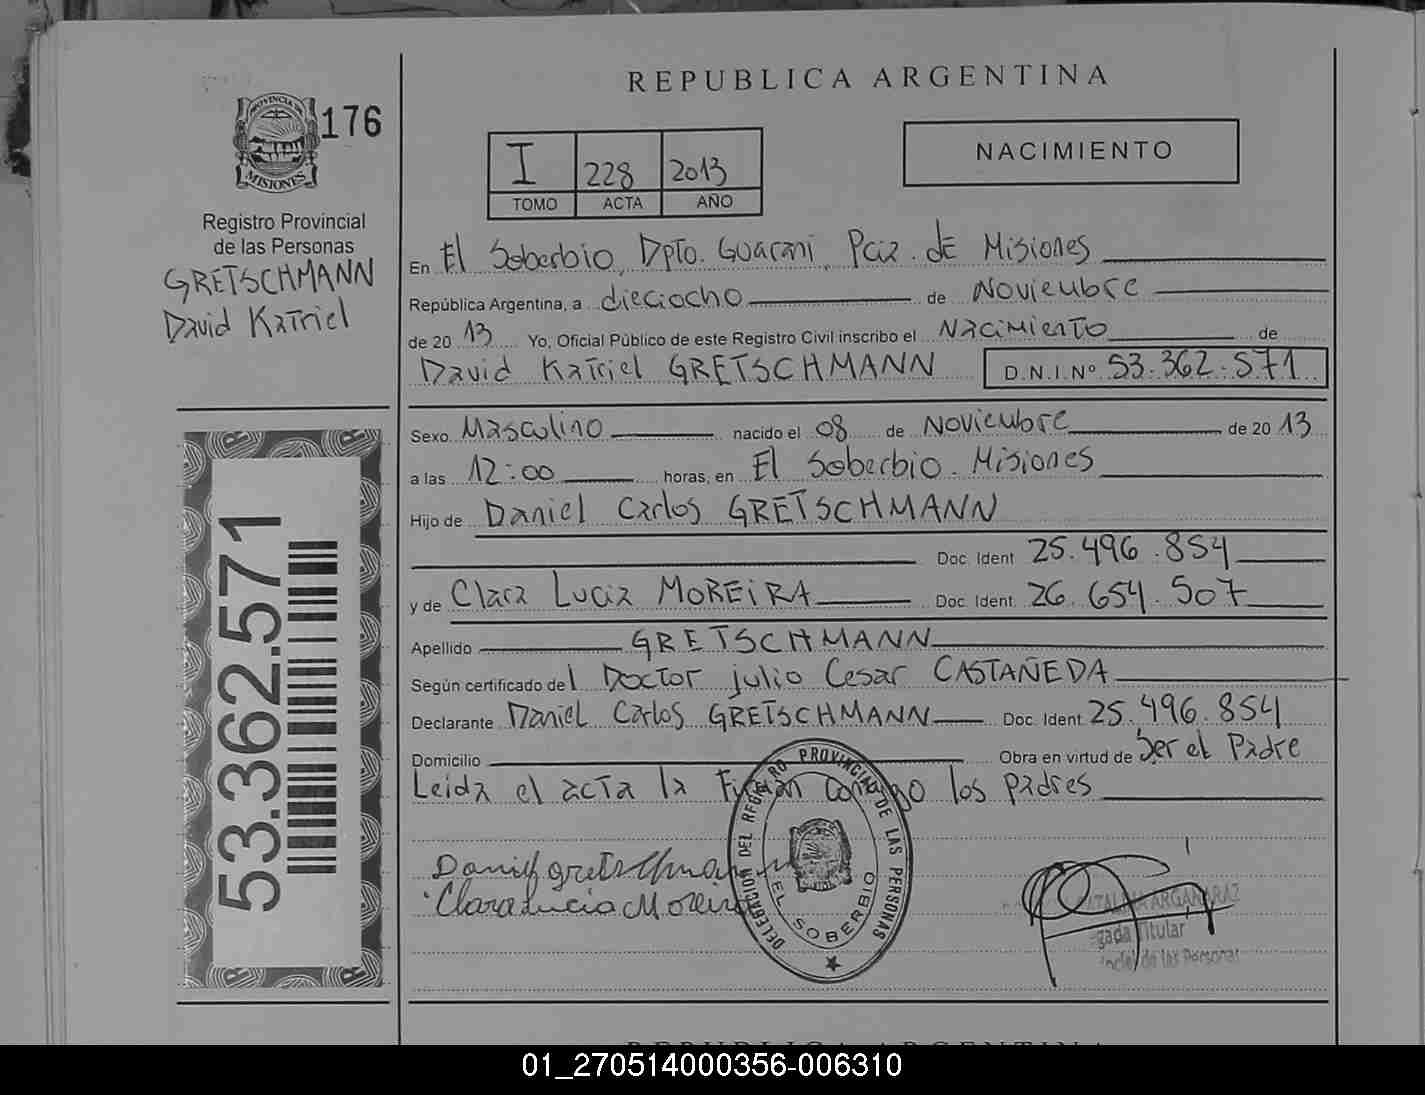 REPUBLICA ARGENTINA
PROVINCIA DE
MISIONES
176
Registro Provincial
de las Personas
GRETSCHMANN
David Katriel
53.362.571
I 228 2013
TOMO ACTA AÑO
NACIMIENTO
En El Soberbio, Dpto. Guarani, Pcia. de Misiones
República Argentina, a dieciocho de Noviembre
de 20 13 Yo, Oficial Público de este Registro Civil inscribo el Nacimiento de
David Katriel GRETSCHMANN D.N.I.Nº 53.362.571
Sexo Masculino nacido el 08 de Noviembre de 20 13
a las 12:00 horas, en El Soberbio. Misiones
Hijo de Daniel Carlos GRETSCHMANN
Doc. Ident. 25.496.854
y de Clara Lucia MOREIRA Doc. Ident. 26.654.507
Apellido GRETSCHMANN
Según certificado del Doctor julio Cesar CASTAÑEDA
Declarante Daniel Carlos GRETSCHMANN Doc. Ident. 25.496.854
Domicilio Obra en virtud de Ser el Padre
Leida el acta la Firman conmigo los padres
Daniel gretschmann
Clara Lucia Moreira
DELEGACION DEL REGISTRO PROVINCIAL DE LAS PERSONAS
EL SOBERBIO
ARGAÑARAZ
Titular
de las Personas
REPUBLICA ARGENTINA
01_270514000356-006310